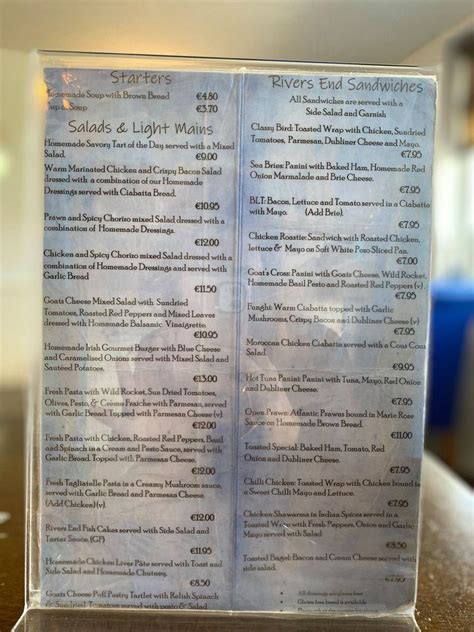 Starters
Homemade Soup with Brown Bread €4.80
Cup a Soup €3.70
Salads & Light Mains
Homemade Savory Tart of the Day served with a Mixed
Salad. €9.00
Warm Marinated Chicken and Crispy Bacon Salad
dressed with a combination of our Homemade
Dressings served with Ciabatta Bread.
€10.95
Prawn and Spicy Chorizo mixed Salad dressed with a
combination of Homemade Dressings.
€12.00
Chicken and Spicy Chorizo mixed Salad dressed with a
combination of Homemade Dressings and served with
Garlic Bread
€11.50
Goats Cheese Mixed Salad with Sundried
Tomatoes, Roasted Red Peppers and Mixed Leaves
dressed with Homemade Balsamic Vinaigrette.
€10.95
Homemade Irish Gourmet Burger with Blue Cheese
and Caramelised Onions served with Mixed Salad and
Sautéed Potatoes.
€13.00
Fresh Pasta with Wild Rocket, Sun Dried Tomatoes,
Olives, Pesto, & Crème Fraiche with Parmesan, served
with Garlic Bread, Topped with Parmesan Cheese (v)
€12.00
Fresh Pasta with Chicken, Roasted Red Peppers, Basil
and Spinach in a Cream and Pesto Sauce, served with
Garlic Bread, Topped with Parmesan Cheese.
€12.00
Fresh Tagliatelle Pasta in a Creamy Mushroom sauce,
served with Garlic Bread and Parmesan Cheese.
(Add Chicken)(v).
€12.00
Rivers End Fish Cakes served with Side Salad and
Tartar Sauce (GF)
€11.95
Homemade Chicken Liver Pâte served with Toast and
Side Salad and Homemade Chutney.
€8.50
Goats Cheese Puff Pastry Tartlet with Relish Spinach
& Sundried Tomatoes served with
Rivers End Sandwiches
All Sandwiches are served with a
Side Salad and Garnish
Classy Bird: Toasted Wrap with Chicken, Sundried
Tomatoes, Parmesan, Dubliner Cheese and Mayo.
€7.95
Sea Bries: Panini with Baked Ham, Homemade Red
Onion Marmalade and Brie Cheese.
€7.95
BLT: Bacon, Lettuce and Tomato served in a Ciabatta
with Mayo. (Add Brie).
€7.95
Chicken Roastie: Sandwich with Roasted Chicken,
lettuce & Mayo on Soft White Pozo Sliced Pan.
€7.00
Goat's Cross: Panini with Goats Cheese, Wild Rocket,
Homemade Basil Pesto and Roasted Red Peppers (v)
€7.95
Funghi: Warm Ciabatta topped with Garlic
Mushrooms, Crispy Bacon and Dubliner Cheese (v)
€7.95
Moroccan Chicken Ciabatta served with a Cous Cous
Salad.
€9.95
Hot Tuna Panini: Panini with Tuna, Mayo, Red Onion
and Dubliner Cheese.
€7.95
Open Prawn: Atlantic Prawns bound in Marie Rose
Sauce on Homemade Brown Bread.
€11.00
Toasted Special: Baked Ham, Tomato, Red
Onion and Dubliner Cheese
€7.95
Chilli Chicken: Toasted Wrap with Chicken bound in
a Sweet Chilli Mayo and Lettuce.
€7.95
Chicken Shawarma in Indian Spices served in a
Toasted Wrap with Fresh Peppers, Onion and Garlic
Mayo served with Salad.
€8.50
Toasted Bagel: Bacon and Cream Cheese served with
side salad.
€7.95
All dressings are gluten free
Gluten free bread is available